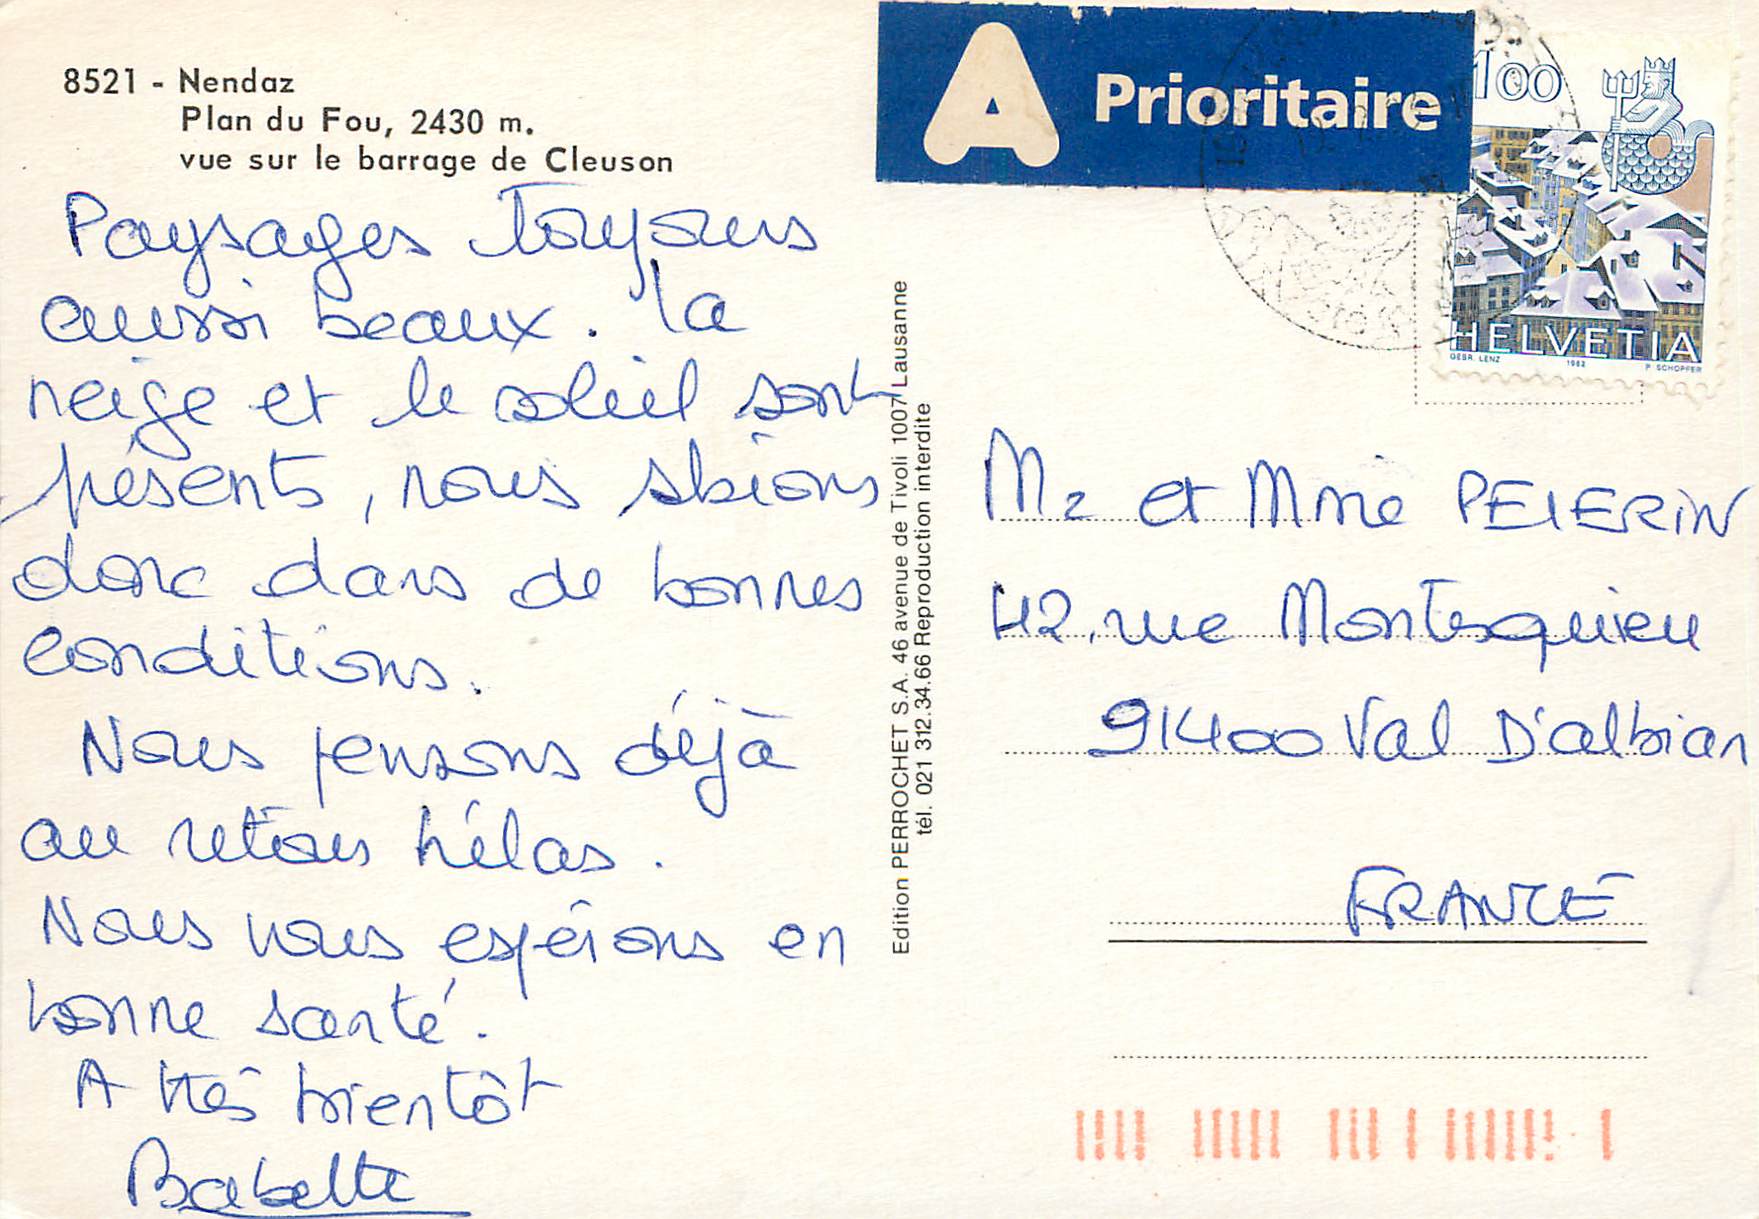 8521 - Nendaz
Plan du Fou, 2430 m.
vue sur le barrage de Cleuson
Paysages toujours
aussi beaux. la
neige et le soleil sont
présents, nous skions
donc dans de bonnes
conditions.
Nous pensons déjà
au retour hélas.
Nous vous espérons en
bonne santé.
A très bientôt
Babette
Edition PERROCHET S.A. 46 avenue de Tivoli 1007 Lausanne
tél. 021 312.34.66 Reproduction interdite
A Prioritaire
100
HELVETIA
GEBR. LENZ 1982 P. SCHOPFER
Mr et Mme PELERIN
42, rue Montesquieu
91400 Val D'albian
FRANCE